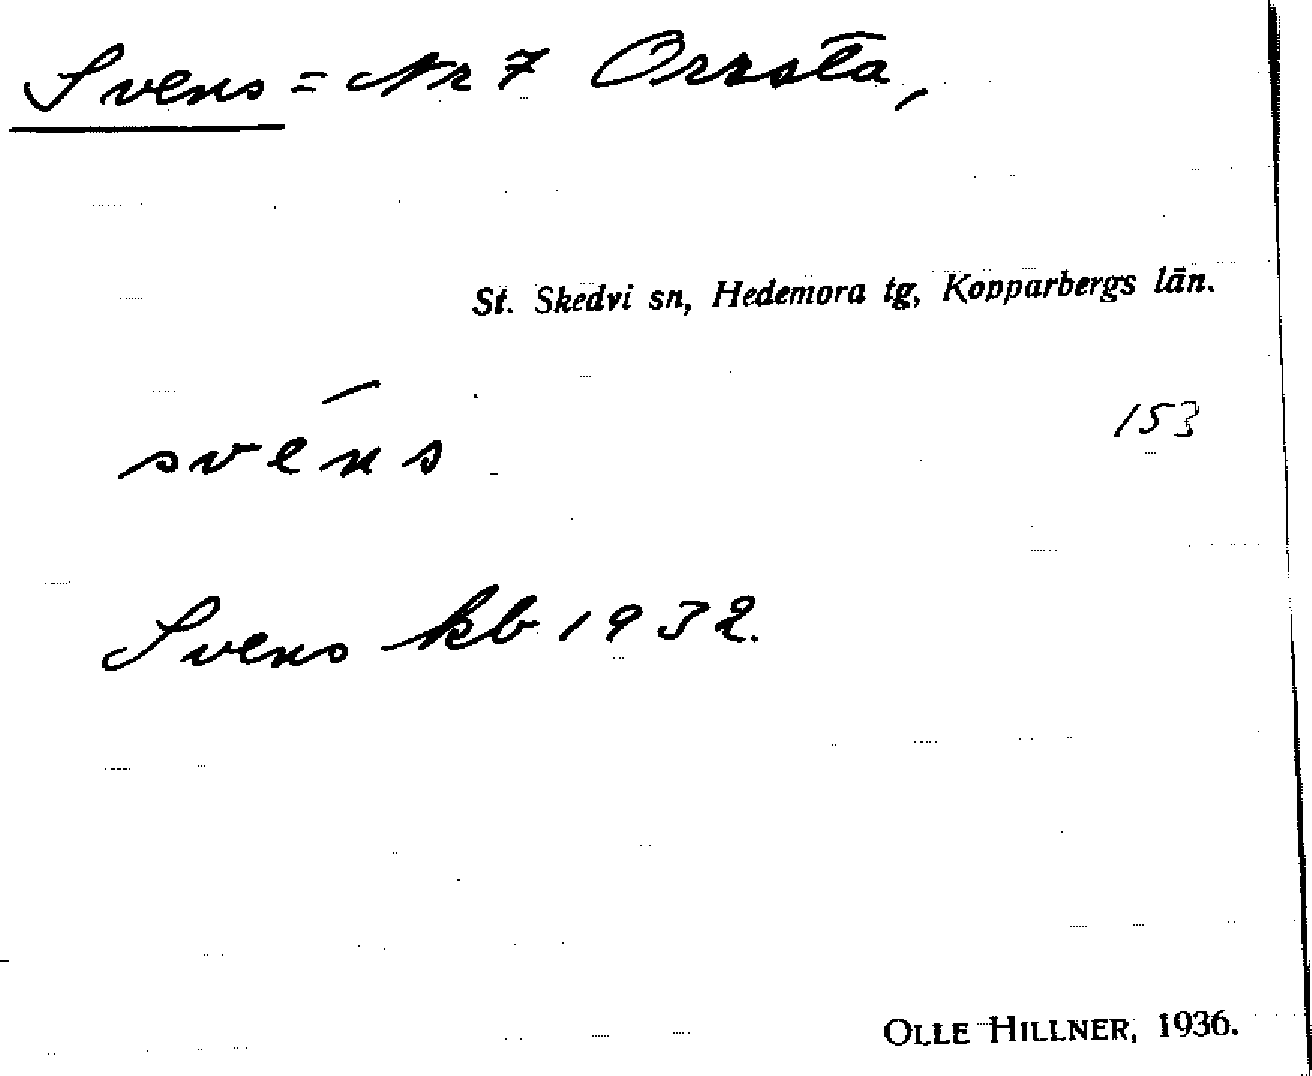 Svens = Nr 7 Orrsta,
St. Skedvi sn, Hedemora tg, Kopparbergs län.
153
svén̄s
Svens kb 1932.
OLLE HILLNER, 1936.